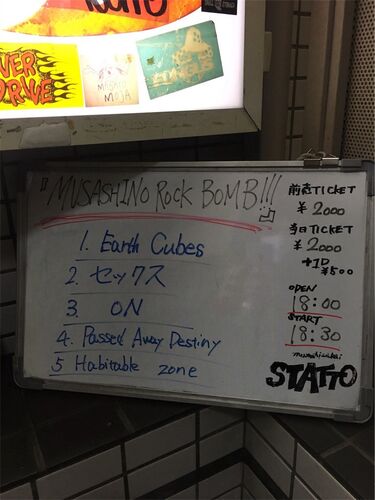 OVER
DRIVE
MUSASHINO
MOJA
『MUSASHINO ROCK BOMB!!!』
1. Earth Cubes
2. セックス
3. ON
4. Passed Away Destiny
5 Habitable zone
前売TICKET
¥2000
当日TICKET
¥2000
+1D
¥500
OPEN
18:00
START
18:30
STATTO